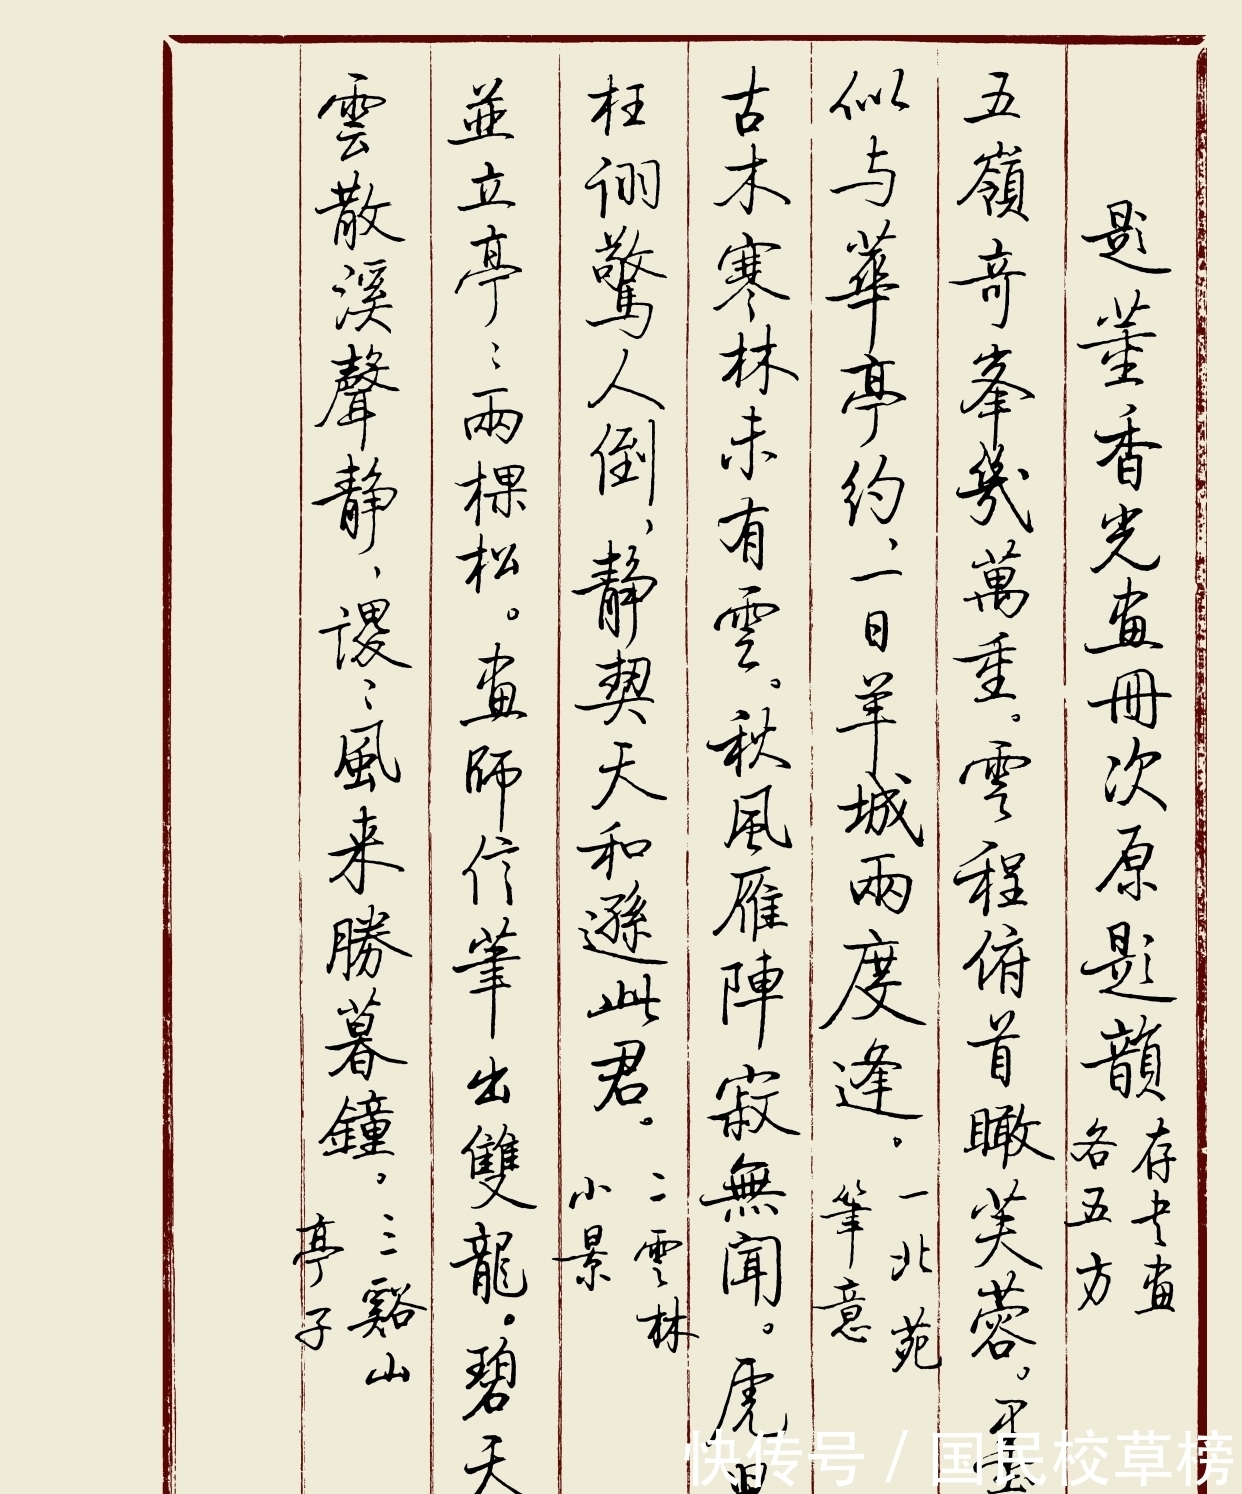 題董香光畫冊次原題韻 存史畫各五方
五嶺奇峯幾萬重。雲程俯首瞰芙蓉。
似与華亭約、一日羊城兩度逢。 一北苑筆意
古木寒林未有雲。秋風雁陣寂無聞。虎
枉詡驚人倒、靜契天和遜此君。 二雲林小景
並立亭〻兩棵松。畫師信筆出雙龍。碧天
雲散溪聲靜、謖〻風来勝暮鐘。 三谿山亭子
快传号 / 国民校草榜